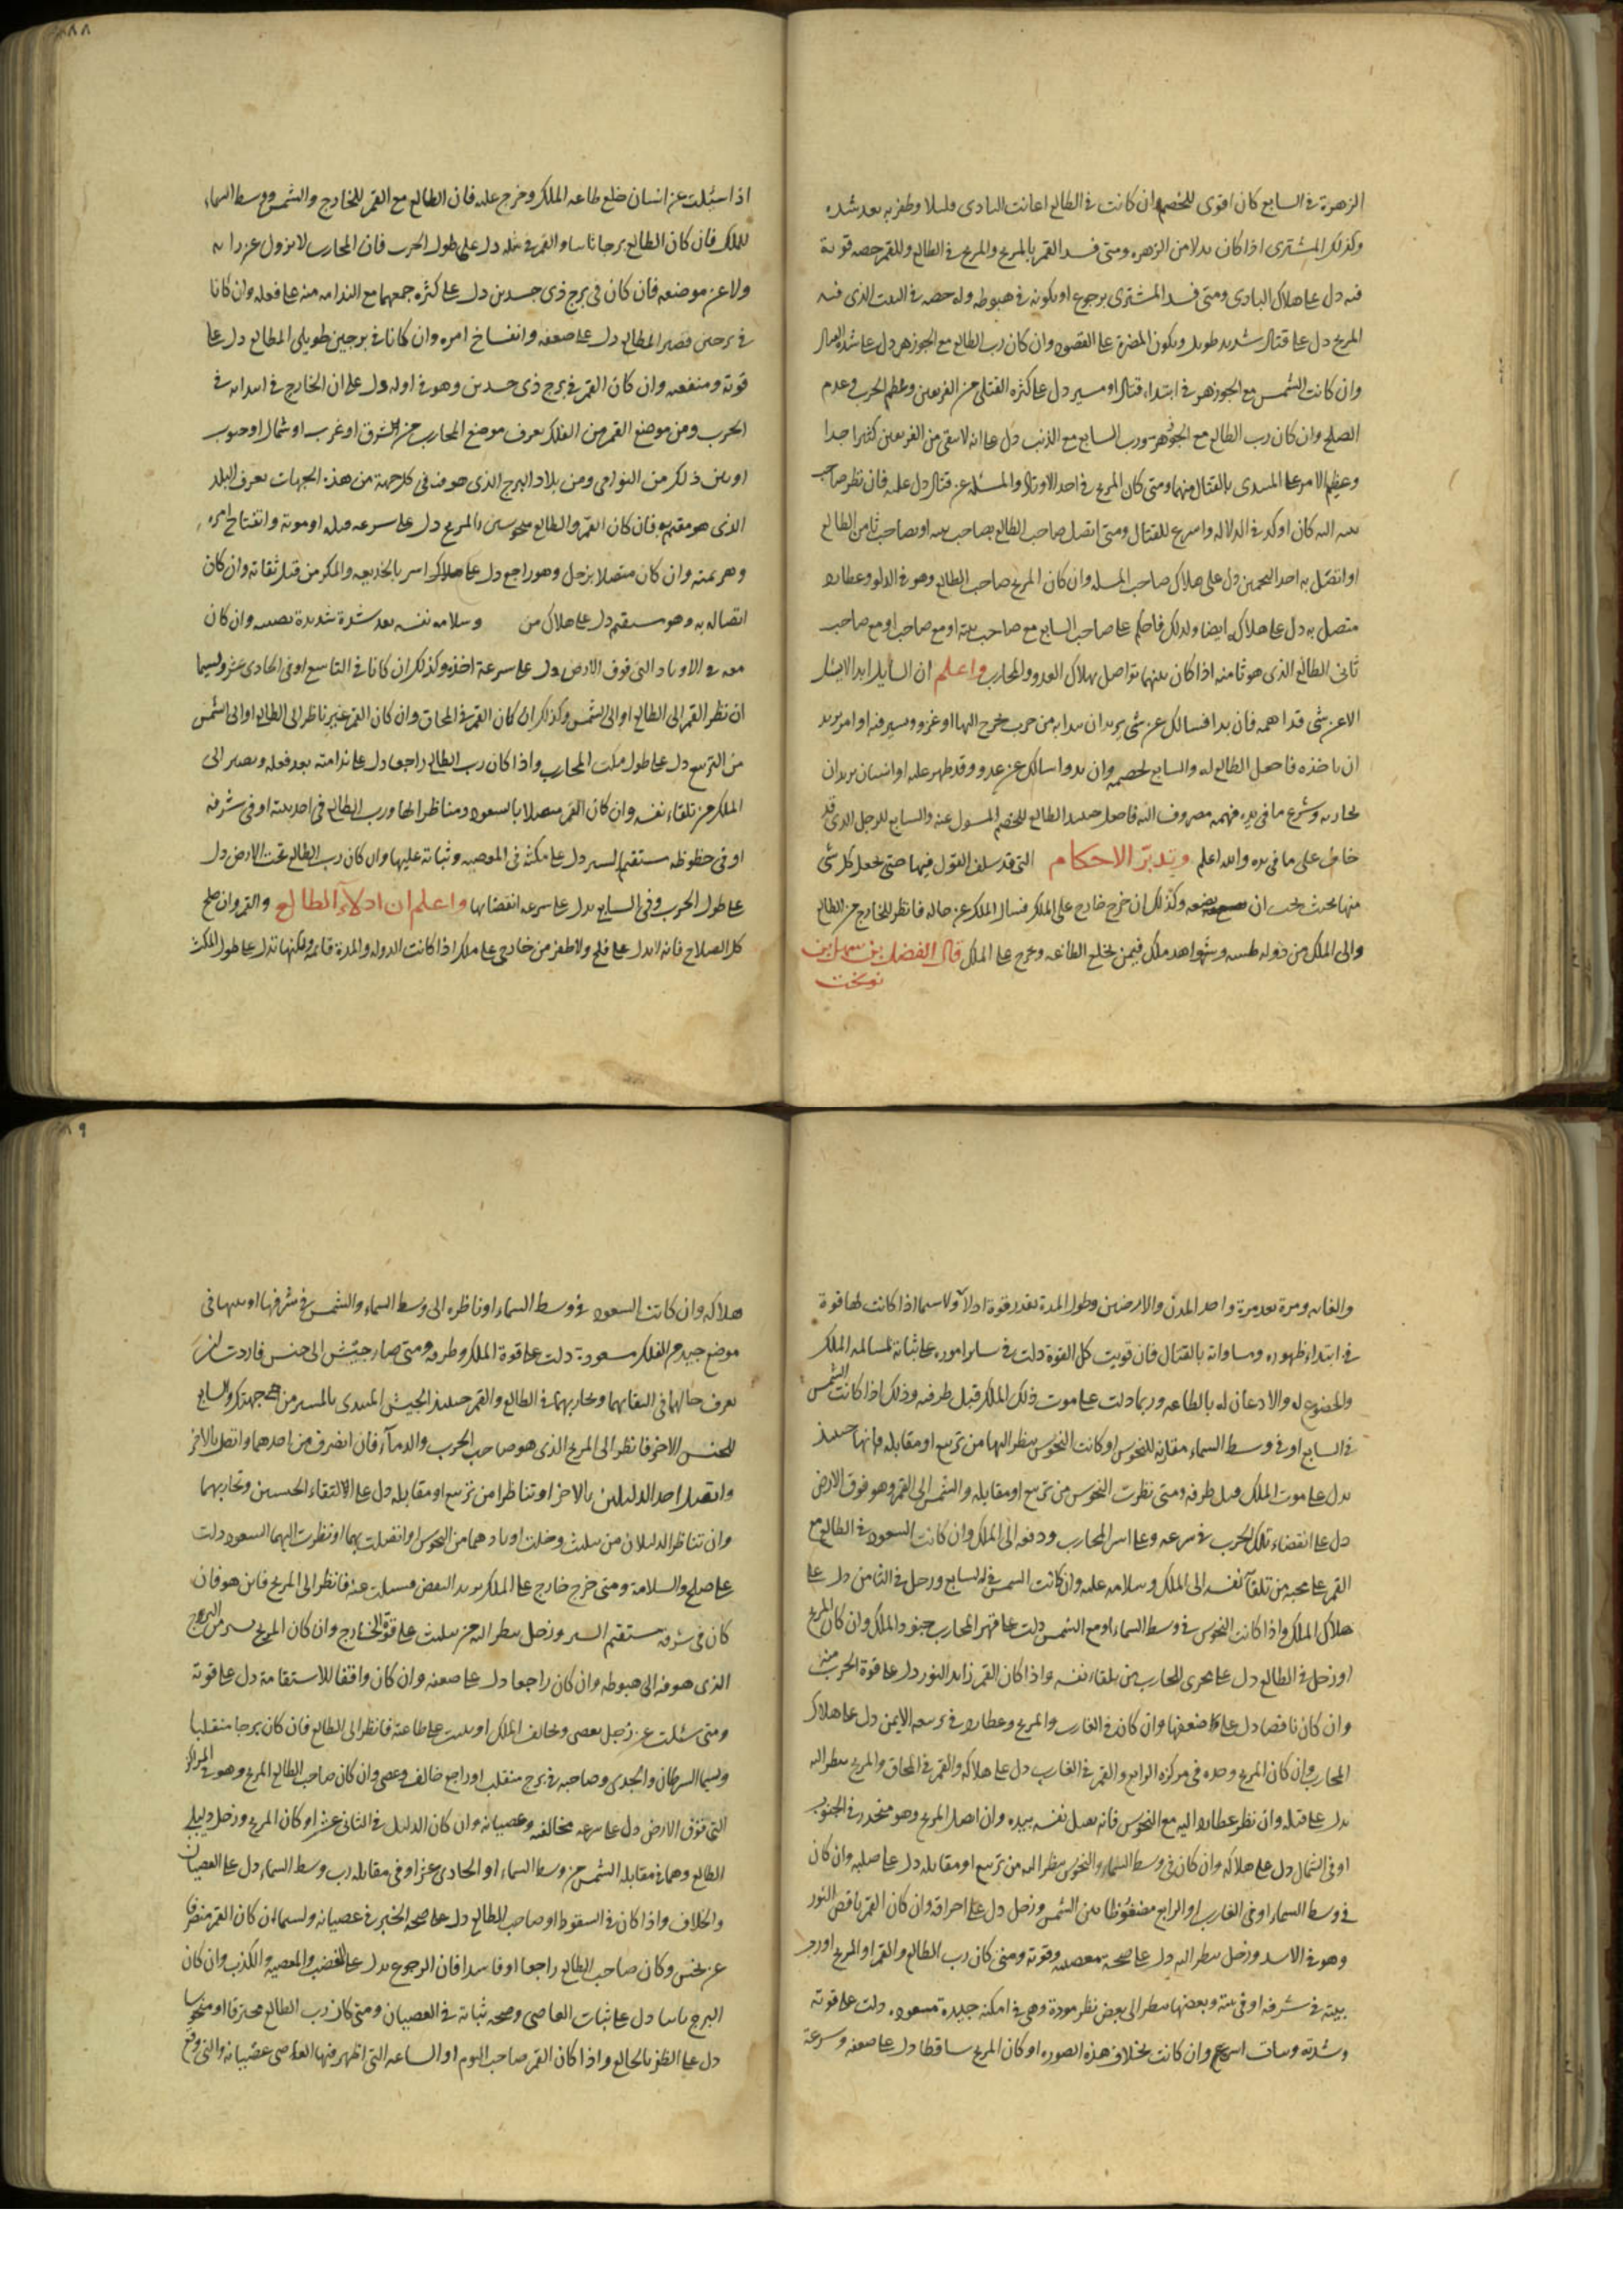 الزهرة في السابع كان اقوى للخصم وان كانت في الطالع اعانت البادى قليلا وظفر به بعد شده
وكذلك المشترى اذا كان بدلا من الزهره ومتى فسد القمر بالمريخ والمريخ في الطالع وللقمر حصه قوية
فيه دل على هلاك البادى ومتى فسد المشترى برجوع او بكونه في هبوطه وله حصه في البيت الذى فيه
المريخ دل على قتال شديد طويل ويكون المضرة على القصور وان كان رب الطالع مع الجوزهر دل على شدة القتال
وان كانت الشمس مع الجوزهر في ابتداء قتال او مسير دل على كثره القتلى من الفريقين وعظم الحرب وعدم
الصلح وان كان رب الطالع مع الجوزهر ورب السابع مع الذنب دل على انه لا يبقى من الفريقين كثيرا جدا
وعظم الامر على المبتدى بالقتال منهما ومتى كان المريخ في احد الاوتاد والمسئله عن قتال دل عليه فان نظر صاحب
بيته اليه كان اوكد في الدلاله واسرع للقتال ومتى اتصل صاحب الطالع بصاحب بيته او بصاحب ثامن الطالع
او اتصل به احد النحسين دل على هلاك صاحب المسله وان كان المريخ صاحب الطالع وهو في الدلو وعطارد
متصل به دل على هلاكه ايضا ولذلك فاحكم على صاحب السابع مع صاحب بيته او مع صاحب او مع صاحب
ثانى الطالع الذى هو ثامنه اذا كان بينهما تواصل بهلاك العدو والمحارب واعلم ان السايل ابدا لا يسئل
الا عن شى قد اهمه فان بدا فسالك عن شى يريد ان يبدا به من حرب خرج اليها او غزو ويسير فيه او امر يريد
ان ياخذه فاجعل الطالع له والسابع لخصمه وان بدوا سالك عن عدو وقد ظهر عليه او انسان يريد ان
يحاربه وشرع ما في يده فهمه مصروف اليه فاجعل حينيذ الطالع للخصم المسول عنه والسابع للرجل الذى قد
خاف على ما في يده والله اعلم وتدبّر الاحكام التى قد سلف القول فيها حتى تجعل كل شى
منها بحيث يجب ان يضعه وكذلك ان خرج خارج على الملك فسال الملك عن حاله فانظر للخارج من الطالع
والى الملك من دوله وشواهد ملك فيمن يخلع الطاعه ويخرج على الملك قال الفضل بن سهل بن
نوبخت
اذا سئلت عن انسان خلع طاعه الملك وخرج عليه فان الطالع مع القمر للخارج والشمس ووسط السماء
للملك فان كان الطالع برجا ثابتا والقمر في مثله دل على طول الحرب فان المحارب لا يزول عن دابه
ولا عن موضعه فان كان في برج ذى جسدين دل على كثره جمعهما مع الندامه منه على فعله وان كانا
في برجين قصير المطالع دل على ضعفه وانفساخ امره وان كانا في برجين طويلى المطالع دل على
قوته ومنفعه وان كان القمر في برج ذى جسدين وهو في اوله دل على ان الخارج في ابتدايه في
الحرب ومن موضع القمر من الفلك يعرف موضع المحارب من الشرق او غرب او شمال او جنوب
او بين ذلك من النواحى ومن بلاد البرج الذى هو فيه في كل جهة من هذه الجهات يعرف البلد
الذى هو مقيم به فان كان القمر والطالع منحوسين بالمريخ دل على سرعه قتله او موته وانفتاح امره
وهزيمته وان كان متصلا بزحل وهو راجع دل على هلاكه اسر بالخديعه والمكر من قبل ثقاته وان كان
اتصاله به وهو مستقيم دل على هلاك من وسلامه نفسه بعد شدة شديدة تصيبه وان كان
معه في الاوتاد التى فوق الارض دل على سرعة اخذه وكذلك ان كانا في التاسع او في الحادى عشر ولسيما
ان نظر القمر الى الطالع او الى الشمس وكذلك ان كان القمر في المحاق وان كان القمر غير ناظر الى الطالع او الى الشمس
من التربيع دل على طول مكث المحارب واذا كان رب الطالع راجعا دل على ندامته بعد فعله ويصير الى
الملك من تلقاء نفسه وان كان القمر متصلا بالسعود ومناظر لها ورب الطالع في احد بيته او في شرفه
او في حظوظه مستقيم السير دل على مكثه في المعصيه وثباته عليها وان كان رب الطالع تحت الارض دل
على طول الحرب وفي السابع يدل على سرعه انقضايها واعلم ان ادلآء الطالع والقمر وان صلح
كل الصلاح فانه لا يدل على فلج ولا ظفر من خارجى على ملك اذا كانت الدوله والمدة قايمه ولكنها تدل على طول المكث
والغابه ومرة بعد مرة واحد المدن والارضين وطول المدة بقدر قوة ادلآء ولا سيما اذا كانت لها قوة
في ابتداء ظهوره ومساواته بالقتال فان قويت كل القوة دلت في ساير اموره على ثباته لمسالمه الملك
والخضوع له والاذعان له بالطاعه وربما دلت على موت ذلك الملك قبل ظفره وذلك اذا كانت الشمس
في السابع او في وسط السماء مقارنه للنحوس او كانت النحوس ينظر اليها من تربيع او مقابله فانها حينيذ
يدل على موت الملك قبل ظفره ومتى نظرت النحوس من تربيع او مقابله والشمس الى القمر وهو فوق الارض
دل على انقضاء تلك الحرب في سرعه وعلى اسر المحارب ودفعه الى الملك وان كانت السعود في الطالع مع
القمر على مجيه من تلقآء نفسه الى الملك وسلامه عليه وان كانت الشمس في السابع وزحل في الثامن دل على
هلاك الملك واذا كانت النحوس في وسط السماء او مع الشمس دلت على قهر المحارب جنود الملك وان كان المريخ
او زحل في الطالع دل على تحرى المحارب من تلقاء نفسه واذا كان القمر زايد النور دل على قوة الحرب منه
وان كان ناقصا دل على ضعفها وان كان في الغارب والمريخ وعطارد في تربيعه الايمن دل على هلاك
المحارب وان كان المريخ وحده في مركزه الرابع والقمر في الغارب دل على هلاكه والقمر في المحاق والمريخ ينظر اليه
يدل على قتله وان نظر عطارد اليه مع النحوس فانه يقتل نفسه بيده وان اتصل المريخ وهو منحدر في الجنوب
او في الشمال دل على هلاكه وان كان في وسط السماء والنحوس ينظر اليه من تربيع او مقابله دل على صلبه وان كان
في وسط السماء او في الغارب او الرابع مضغوطا بين الشمس وزحل دل على احراقه وان كان القمر ناقص النور
وهو في الاسد وزحل ينظر اليه دل على صحه معصيته وقوته ومتى كان رب الطالع والقمر او المريخ او رب
بيته في شرفه او في بيته وبعضها ينظر الى بعض نظر مودة وهى في امكنه جيدة مسعوده دلت على قوته
وشدته وثبات امره وان كانت بخلاف هذه الصوره او كان المريخ ساقطا دل على ضعفه وسرعة
هلاكه وان كانت السعود في وسط السماء او ناظره الى وسط السماء والشمس في شرفها او بيتها في
موضع جيد من الفلك مسعودة دلت على قوة الملك وظفره ومتى صار جيش الى جيش فاردت ان
تعرف حالهما في التقايهما وتحاربهما في الطالع والقمر حينيذ الجيش المبتدى بالمسير من جهتك والسابع
للجيش الاخر فانظر الى المريخ الذى هو صاحب الحرب والدمآء فان انصرف من احدهما واتصل بالاخر
واتصل احد الدليلين بالاخر او تناظرا من تربيع او مقابله دل على الالتقاء الجيشين وتحاربهما
وان تناظر الدليلان من تثليث وخلت اوتادهما من النحوس او اتصلت بهما او نظرت اليهما السعود دلت
على صلح والسلامة ومتى خرج خارج على الملك يريد البعض فسيلت عنه فانظر الى المريخ فاين هو فان
كان في شرفه مستقيم السير وزحل ينظر اليه من تثليث على قوة الخارج وان كان المريخ يسير من البروج
الذى هو فيه الى هبوطه وان كان راجعا دل على ضعفه وان كان واقفا للاستقامة دل على قوته
ومتى سئلت عن رجل يعصى وخالف الملك او يثبت على طاعته فانظر الى الطالع فان كان برجا منقلبا
ولسيما السرطان والجدى وصاحبه في برج منقلب او راجع خالف وعصى وان كان صاحب الطالع المريخ وهو في المراكز
التى فوق الارض دل على سرعه مخالفته وعصيانه وان كان الدليل في الثانى عشر او كان المريخ وزحل دليلى
الطالع وهما في مقابله الشمس من وسط السماء او الحادى عشر او في مقابله رب وسط السماء دل على العصيان
والخلاف واذا كان في السقوط او صاحب الطالع دل على صحه الخبر في عصيانه ولسيما ان كان القمر منصرفا
عن نحس وكان صاحب الطالع راجعا او فاسدا فان الرجوع يدل على الغضب والمعصيه والكذب وان كان
البرج ثابتا دل على ثبات العاصى وصحه ثباته في العصيان ومتى كان رب الطالع محترقا او منحوسا
دل على الظفر بالخالع واذا كان القمر صاحب اليوم او الساعه التى اظهر فيها العاصى عصيانه والتى وقع